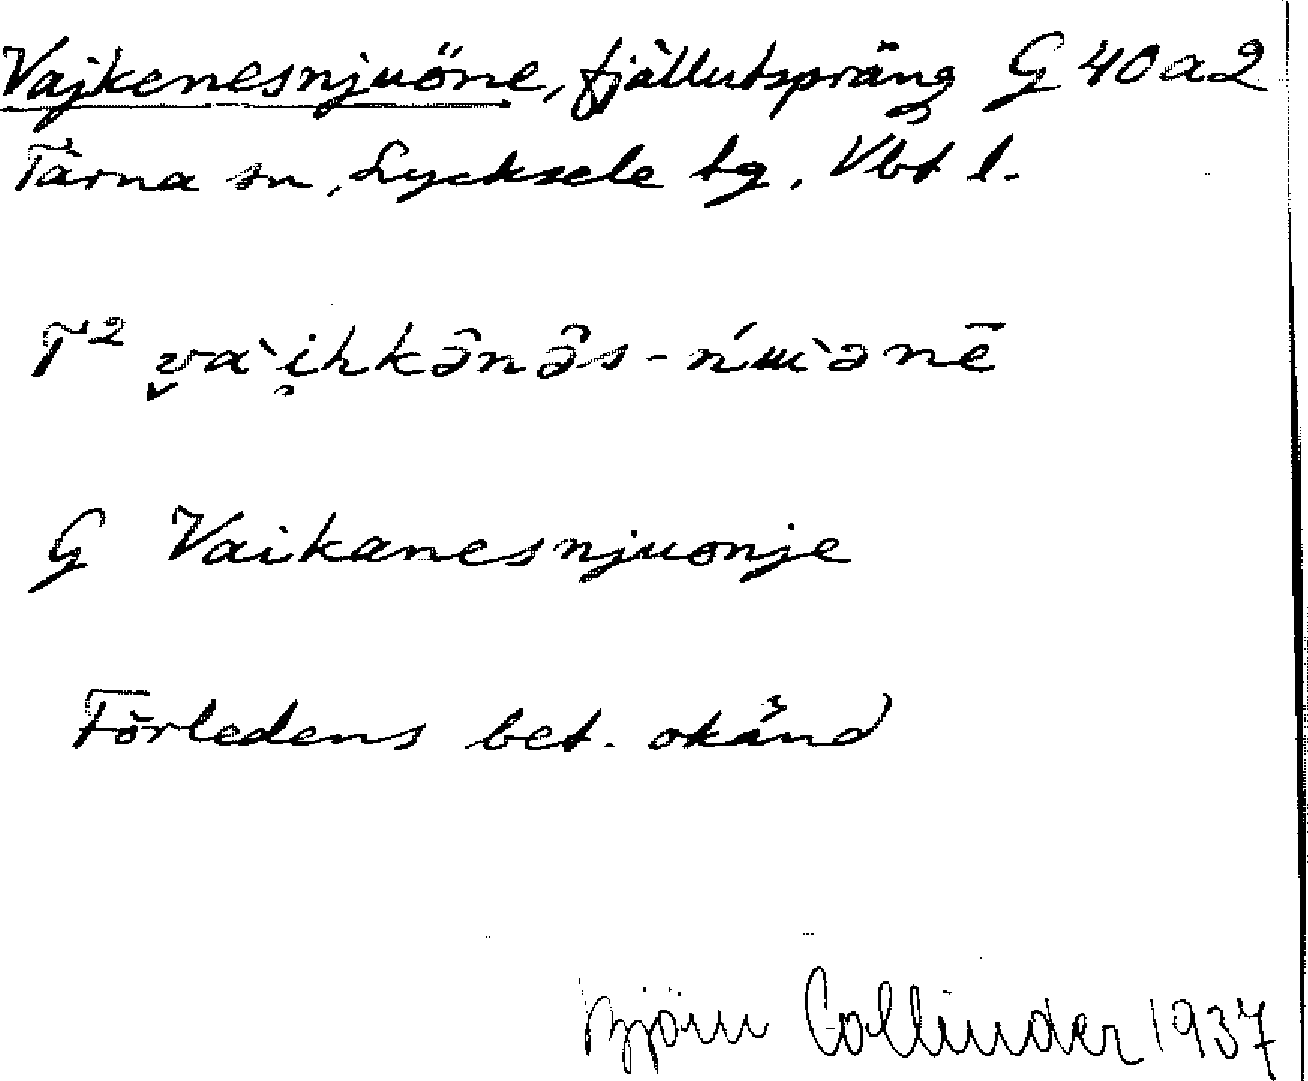 Vajkenesnjuöne, fjällutspräng G 40 a 2
Tärna sn, Lycksele tg, Vbt l.
T² v̬a`i̯hkə̂nə̂s-ńɯ`ənē
G Vaikanesnjuonje
Förledens bet. okänd
Björn Collinder 1937